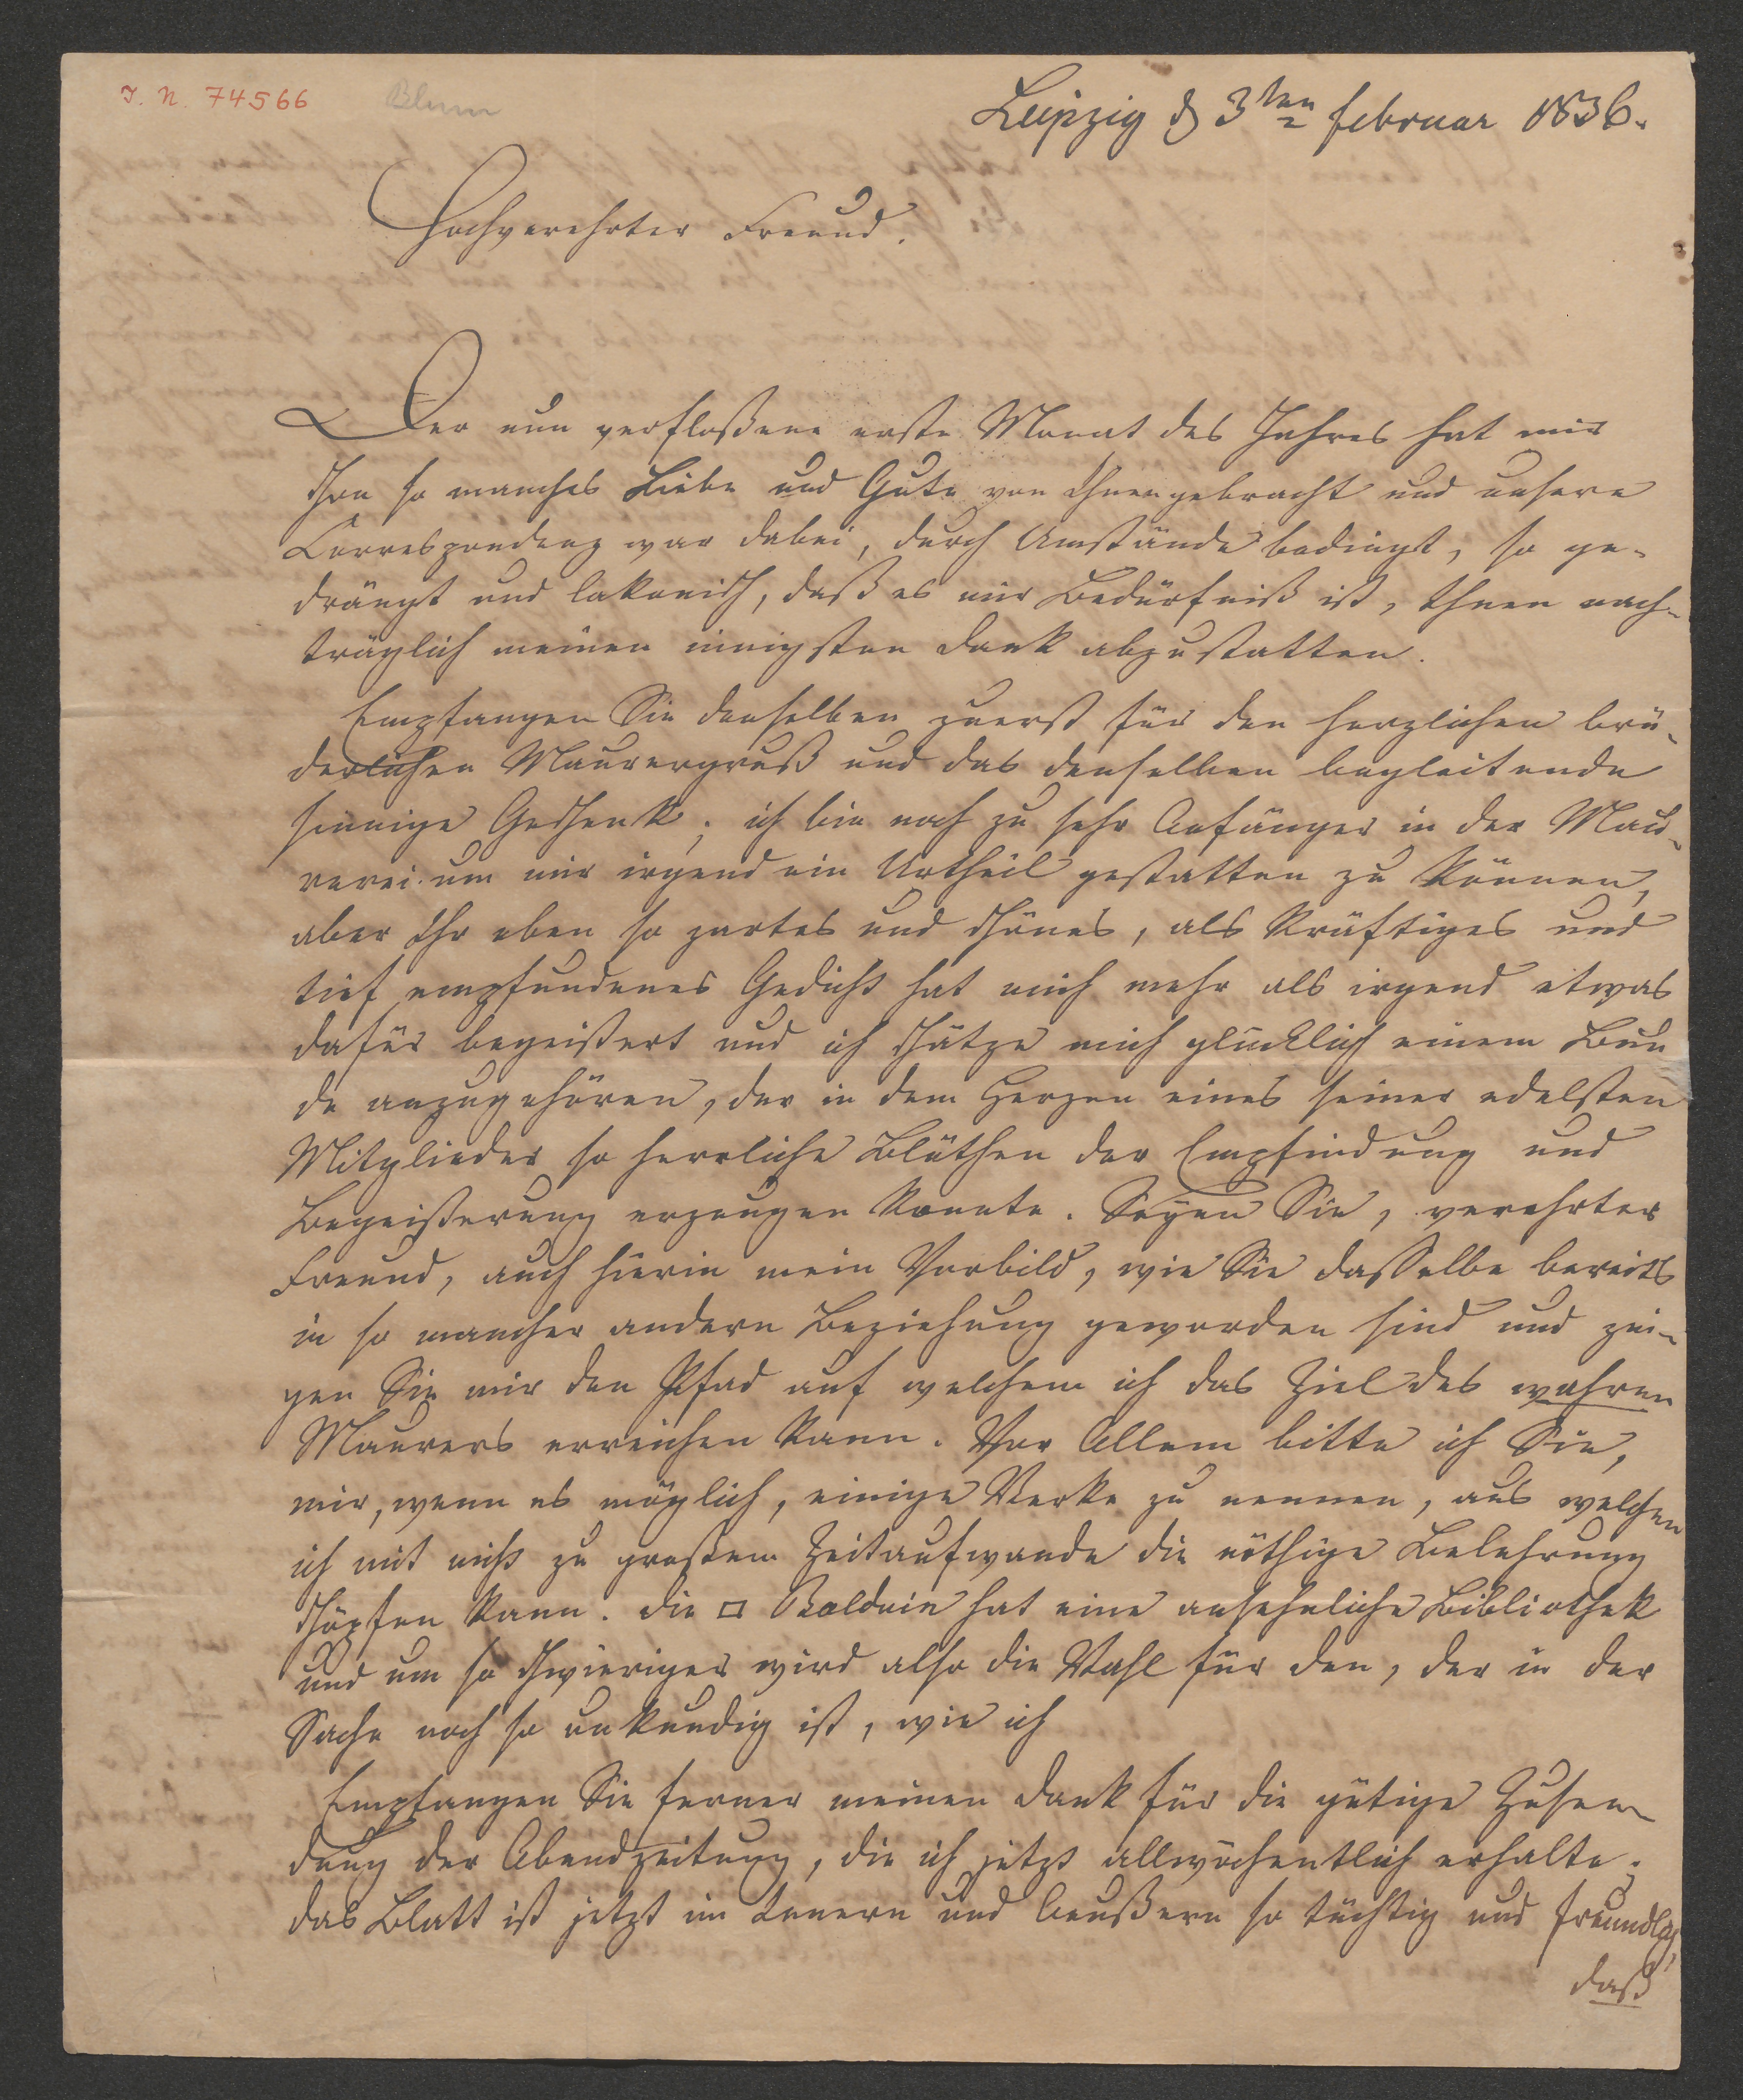 J. N. 74566
Blum
Leipzig d 3ten februar 1836.
Hochverehrter Freund.
Der nun verfloßene erste Monat des Jahres hat mir
schon so manches Liebe und Gute von Ihnen gebracht und unsere
Correspondenz war dabei, durch Umstände bedingt, so ge-
drängt und lakonisch, daß es mir Bedürfniß ist, Ihnen nach-
träglich meinen innigsten Dank abzustatten.
Empfangen Sie denselben zuerst für den herzlichen brü-
derlichen Maurergruß und das denselben begleitende
sinnige Geschenk; ich bin noch zu sehr Anfänger in der Mau-
rerei um mir irgend ein Urtheil gestatten zu können,
aber Ihr eben so zartes und schönes, als kräftiges und
tief empfundenes Gedicht hat mich mehr als irgend etwas
dafür begeistert und ich schätze mich glücklich einem Bun
de anzugehören, der in dem Herzen eines seiner edelsten
Mitglieder so herrliche Blüthen der Empfindung und
Begeisterung erzeugen konnte. Seyen Sie, verehrter
Freund, auch hierin mein Vorbild, wie Sie dasselbe bereits
in so mancher andern Beziehung geworden sind und zei-
gen Sie mir den Pfad auf welchem ich das Ziel des wahren
Maurers erreichen kann. Vor Allem bitte ich Sie,
mir, wenn es möglich, einige Werke zu nennen, aus welchen
ich mit nicht zu großem Zeitaufwande die nöthige Belehrung
schöpfen kann. Die □ Balduin hat eine ansehnliche Bibliothek
und um so schwieriger wird also die Wahl für den, der in der
Sache noch so unkundig ist, wie ich
Empfangen Sie ferner meinen Dank für die gütige Zusen-
dung der Abendzeitung, die ich jetzt allwöchentlich erhalte;
das Blatt ist jetzt im Innern und Aeußern so tüchtig und freundlich,
daß